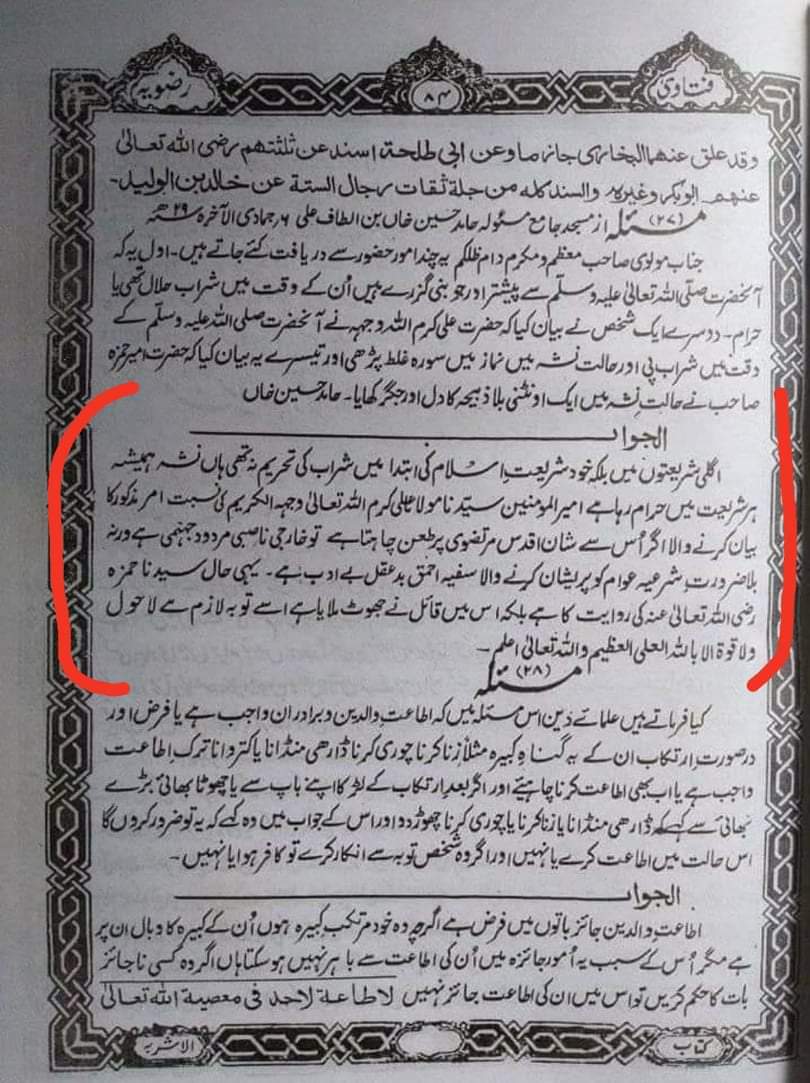 فتاوی
۸۴
رضویہ
وقد علق عنهما البخاری جازما وعن ابی طلحة اسند عن ثلثتهم رضی الله تعالیٰ
عنهم ابوبکر وغیرہ والسند کله من جلة ثقات رجال الستة عن خالد بن الولید۔
مسئلہ (۲۷) از مسجد جامع مسئولہ حامد حسین خاں بن الطاف علی ۶ر جمادی الآخرہ ۲۹ ھ
جناب مولوی صاحب معظم ومکرم دام ظلکم یہ چند امور حضور سے دریافت کئے جاتے ہیں۔ اول یہ کہ
آنحضرت صلی اللہ تعالیٰ علیہ وسلم سے پیشتر اور جو نبی گزرے ہیں اُن کے وقت میں شراب حلال تھی یا
حرام۔ دوسرے ایک شخص نے بیان کیا کہ حضرت علی کرم اللہ وجہہ نے آنحضرت صلی اللہ علیہ وسلم کے
وقت میں شراب پی اور حالت نشہ میں نماز میں سورہ غلط پڑھی اور تیسرے یہ بیان کیا کہ حضرت امیر حمزہ
صاحب نے حالت نشہ میں ایک اونٹنی بلا ذبیحہ کا دل اور جگر کھایا۔ حامد حسین خاں
الجواب
اگلی شریعتوں میں بلکہ خود شریعت اسلام کی ابتدا میں شراب کی تحریم نہ تھی ہاں نشہ ہمیشہ
ہر شریعت میں حرام رہا ہے امیر المومنین سیدنا مولا علی کرم اللہ تعالیٰ وجہہ الکریم کی نسبت امر مذکور کا
بیان کرنے والا اگر اُس سے شان اقدس مرتضوی پر طعن چاہتا ہے تو خارجی ناصبی مردود جہنمی ہے ورنہ
بلا ضرورت شرعیہ عوام کو پریشان کرنے والا سفیہ احمق بدعقل بے ادب ہے۔ یہی حال سیدنا حمزہ
رضی اللہ تعالیٰ عنہ کی روایت کا ہے بلکہ اس میں قائل نے جھوٹ ملایا ہے اسے توبہ لازم ہے لاحول
ولا قوۃ الا باللہ العلی العظیم واللہ تعالیٰ اعلم۔
مسئلہ (۲۸)
کیا فرماتے ہیں علمائے دین اس مسئلہ میں کہ اطاعت والدین وبرادران واجب ہے یا فرض اور
درصورت ارتکاب ان کے بہ گناہ کبیرہ مثلاً زنا کرنا چوری کرنا ڈارھی منڈانا یا کتروانا ترک اطاعت
واجب ہے یا اب بھی اطاعت کرنا چاہئے اور اگر بعد ارتکاب کے لڑکا اپنے باپ سے یا چھوٹا بھائی بڑے
بھائی سے کہے کہ ڈارھی منڈانا یا زنا کرنا یا چوری کرنا چھوڑ دو اور اس کے جواب میں وہ کہے کہ یہ تو ضرور کروں گا
اس حالت میں اطاعت کرے یا نہیں اور اگر وہ شخص توبہ سے انکار کرے تو کافر ہوا یا نہیں۔
الجواب
اطاعت والدین جائز باتوں میں فرض ہے اگرچہ وہ خود مرتکب کبیرہ ہوں اُن کے کبیرہ کا وبال ان پر
ہے مگر اُس کے سبب یہ اُمور جائزہ میں اُن کی اطاعت سے باہر نہیں ہو سکتا ہاں اگر وہ کسی ناجائز
بات کا حکم کریں تو اس میں ان کی اطاعت جائز نہیں لاطاعة لاحد فی معصیة اللہ تعالیٰ
کتاب
الاشربہ